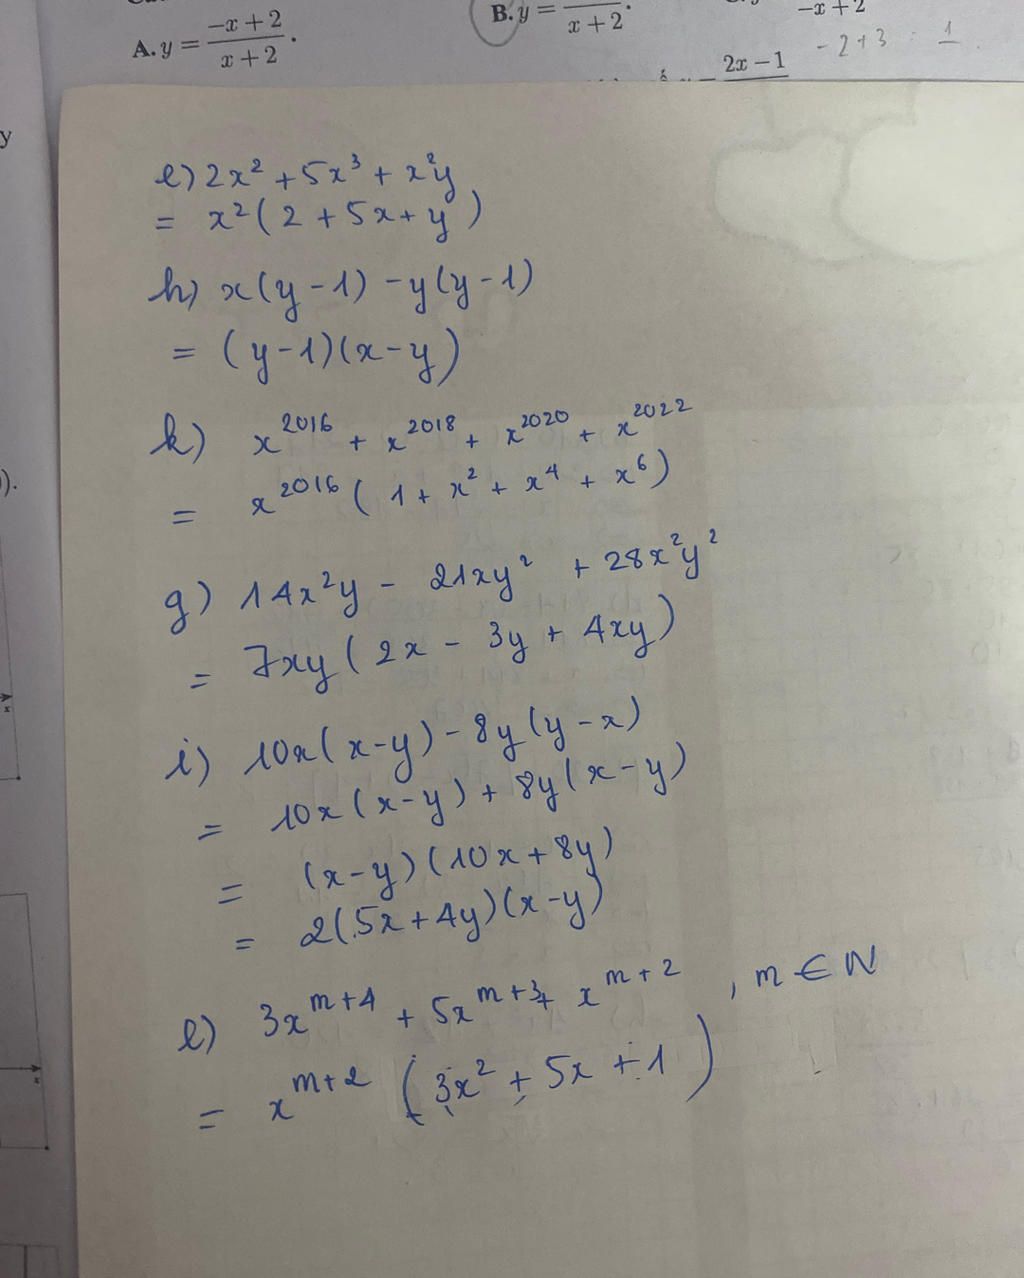 A. y = (-x + 2)/(x + 2).
B. y = /(x + 2).
-x + 2
- 2 + 3 : 1
2x - 1
y
).
e) 2x² + 5x³ + x²y
= x²(2 + 5x + y)
h) x(y - 1) - y(y - 1)
= (y - 1)(x - y)
k) x²⁰¹⁶ + x²⁰¹⁸ + x²⁰²⁰ + x²⁰²²
= x²⁰¹⁶(1 + x² + x⁴ + x⁶)
g) 14x²y - 21xy² + 28x²y²
= 7xy(2x - 3y + 4xy)
i) 10x(x - y) - 8y(y - x)
= 10x(x - y) + 8y(x - y)
= (x - y)(10x + 8y)
= 2(5x + 4y)(x - y)
l) 3x^(m+4) + 5x^(m+3) + x^(m+2), m ∈ N
= x^(m+2)(3x² + 5x + 1)